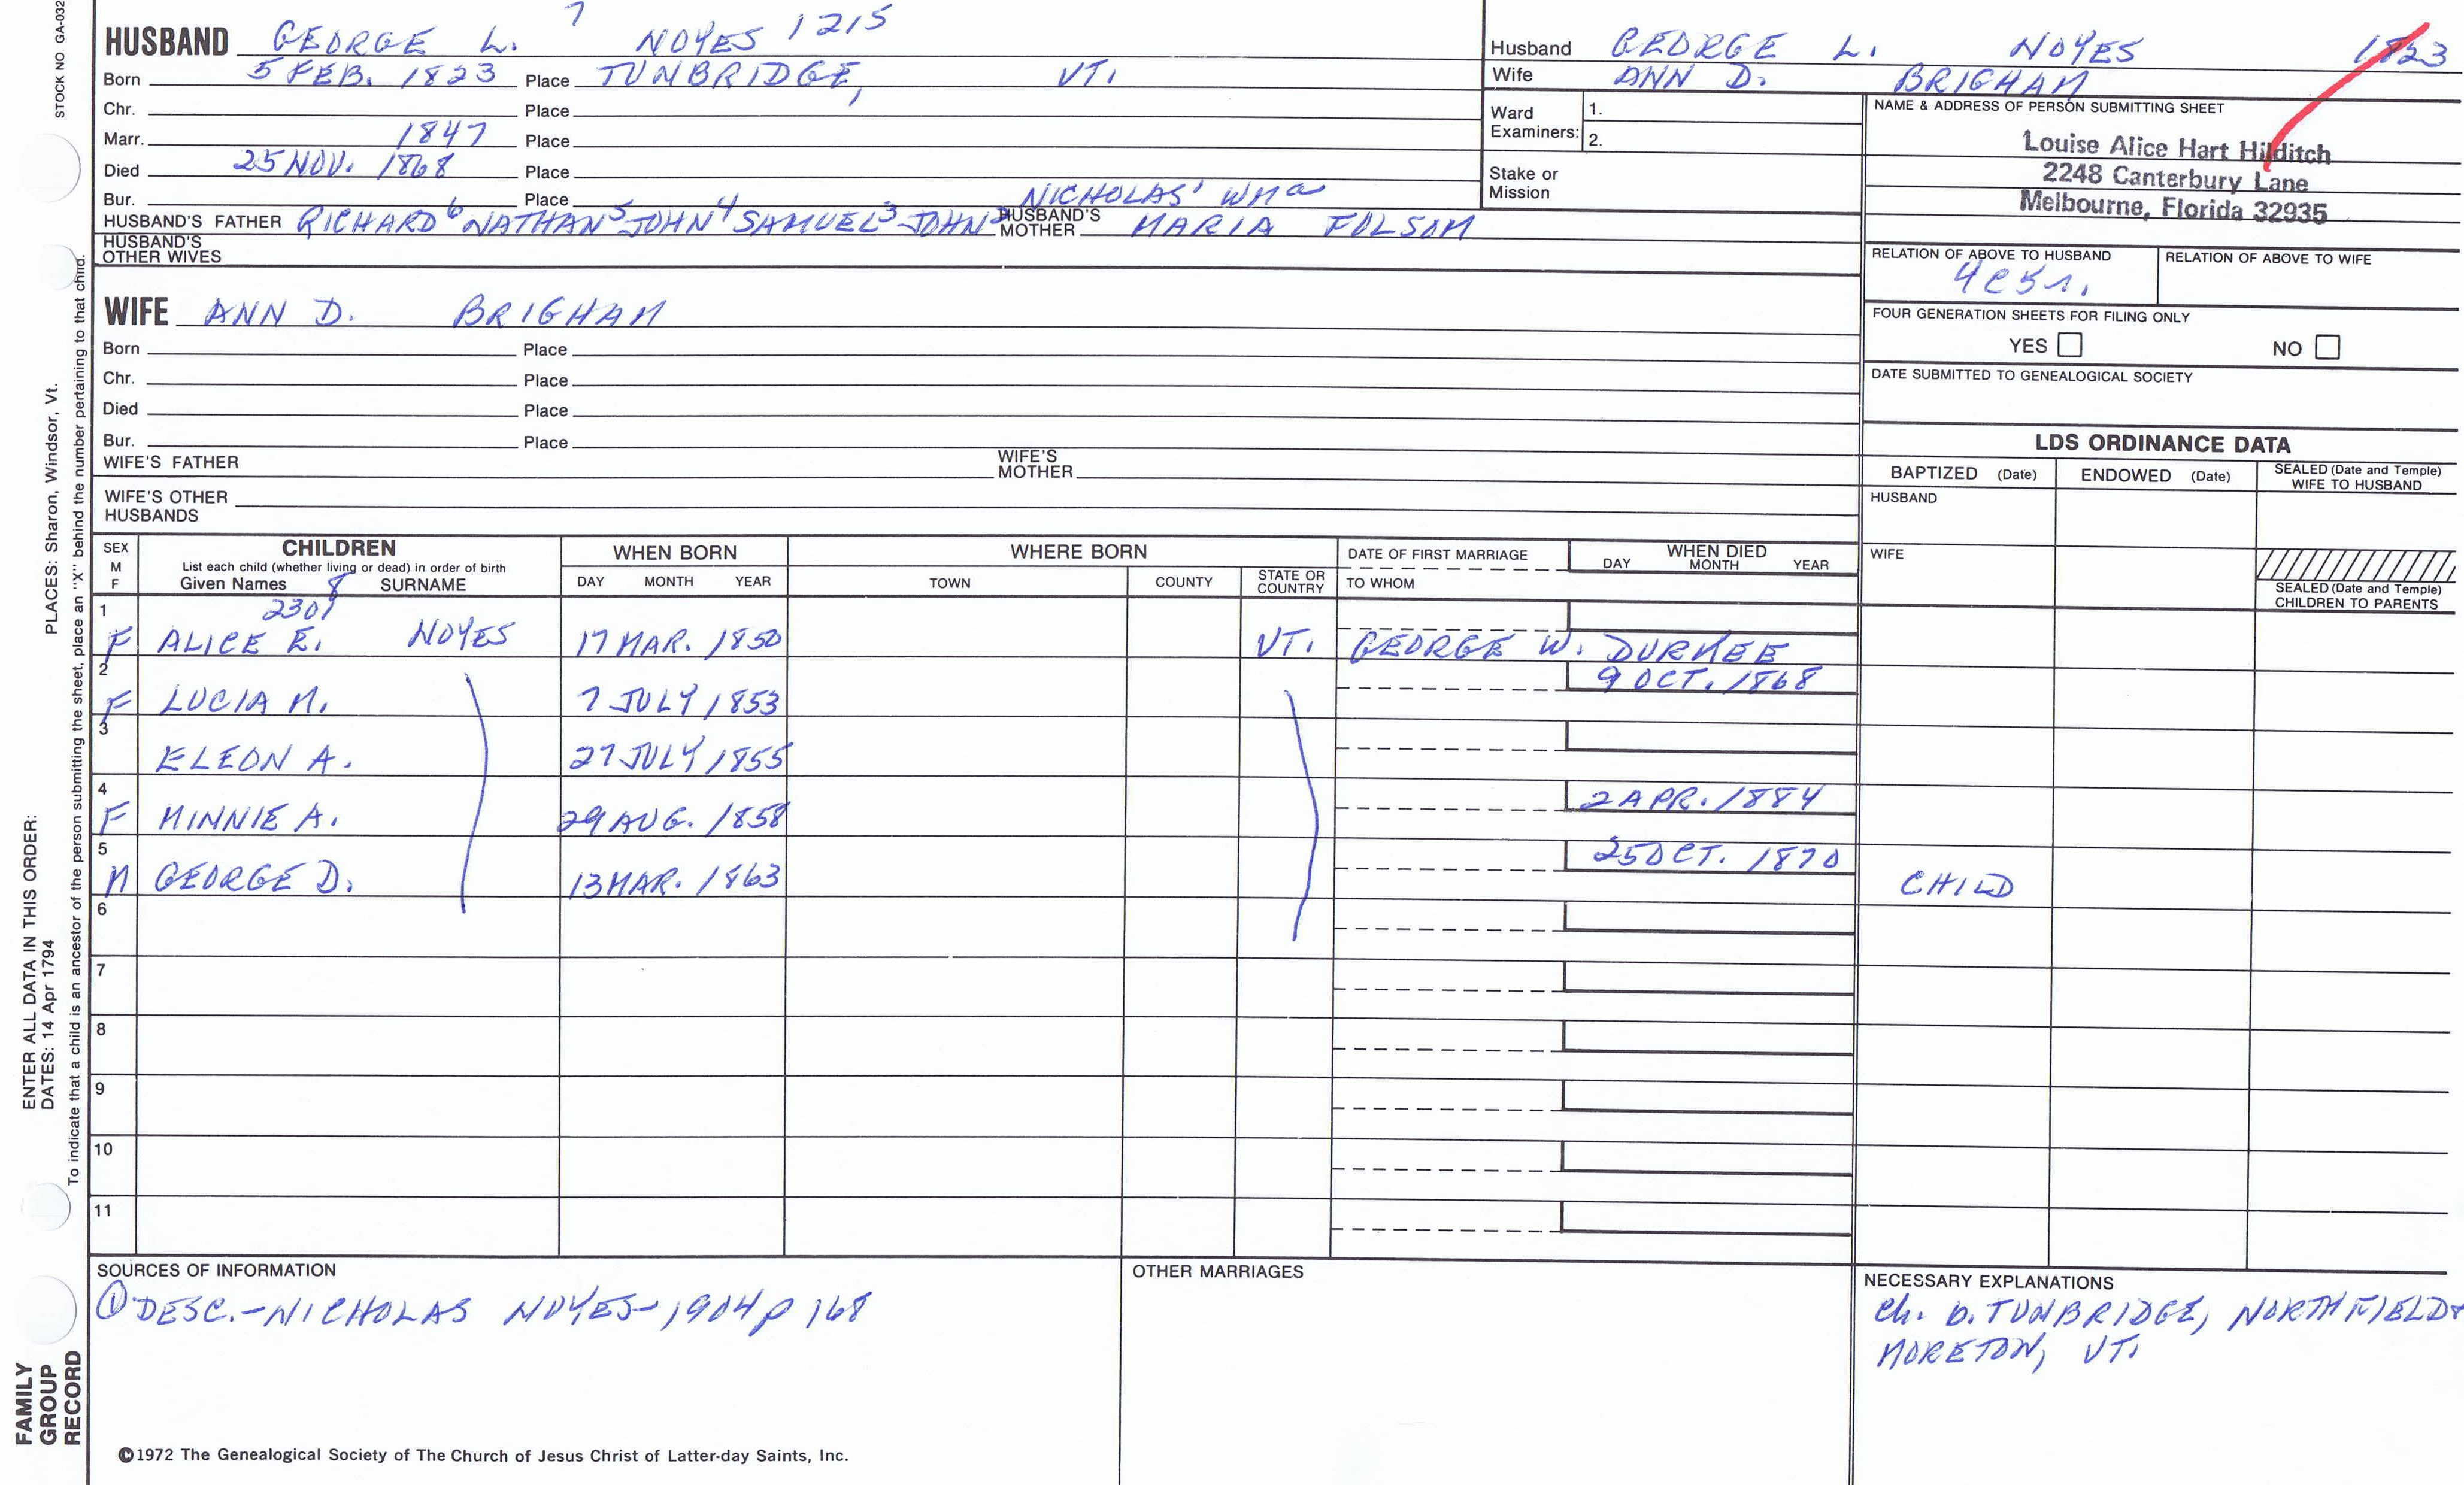 STOCK NO GA-032
HUSBAND GEORGE L. 7 NOYES 1215
Born 5 FEB. 1823 Place TUNBRIDGE, VT.
Chr. Place
Marr. 1847 Place
Died 25 NOV. 1868 Place
Bur. Place
HUSBAND'S FATHER RICHARD 6 NATHAN 5 JOHN 4 SAMUEL 3 JOHN 2 NICHOLAS' Wm a HUSBAND'S MOTHER MARIA FOLSOM
HUSBAND'S OTHER WIVES
WIFE ANN D. BRIGHAM
Born Place
Chr. Place
Died Place
Bur. Place
WIFE'S FATHER WIFE'S MOTHER
WIFE'S OTHER HUSBANDS
Husband GEORGE L. NOYES 1823
Wife ANN D. BRIGHAM
Ward Examiners: 1. 2.
Stake or Mission
NAME & ADDRESS OF PERSON SUBMITTING SHEET
Louise Alice Hart Hilditch
2248 Canterbury Lane
Melbourne, Florida 32935
RELATION OF ABOVE TO HUSBAND RELATION OF ABOVE TO WIFE
4C5r.
FOUR GENERATION SHEETS FOR FILING ONLY
YES NO
DATE SUBMITTED TO GENEALOGICAL SOCIETY
LDS ORDINANCE DATA
BAPTIZED (Date) ENDOWED (Date) SEALED (Date and Temple) WIFE TO HUSBAND
HUSBAND
WIFE
SEALED (Date and Temple) CHILDREN TO PARENTS
SEX M F CHILDREN List each child (whether living or dead) in order of birth Given Names 8 SURNAME WHEN BORN DAY MONTH YEAR WHERE BORN TOWN COUNTY STATE OR COUNTRY DATE OF FIRST MARRIAGE TO WHOM WHEN DIED DAY MONTH YEAR
1 2301
F ALICE E. NOYES 17 MAR. 1850 VT. GEORGE W. DURKEE
2 F LUCIA M. 7 JULY 1853 9 OCT. 1868
3 ELEON A. 27 JULY 1855
4 F MINNIE A. 29 AUG. 1858 2 APR. 1884
5 M GEORGE D. 13 MAR. 1863 25 OCT. 1870 CHILD
6
7
8
9
10
11
SOURCES OF INFORMATION
① DESC.-NICHOLAS NOYES-1904 p 168
OTHER MARRIAGES
NECESSARY EXPLANATIONS
Ch. b. TUNBRIDGE, NORTHFIELD &
MORETON, VT.
©1972 The Genealogical Society of The Church of Jesus Christ of Latter-day Saints, Inc.
FAMILY GROUP RECORD
ENTER ALL DATA IN THIS ORDER:
DATES: 14 Apr 1794
PLACES: Sharon, Windsor, Vt.
To indicate that a child is an ancestor of the person submitting the sheet, place an "X" behind the number pertaining to that child.